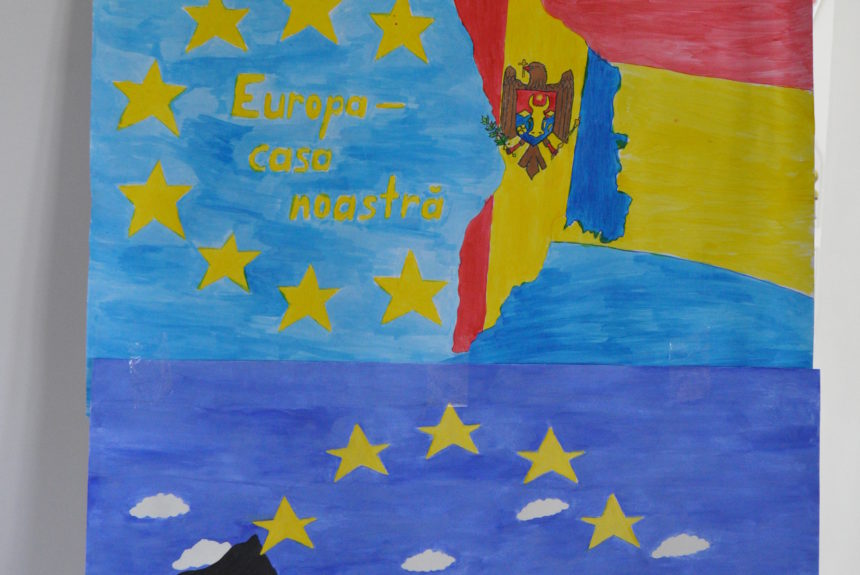 Europa –
casa
noastră